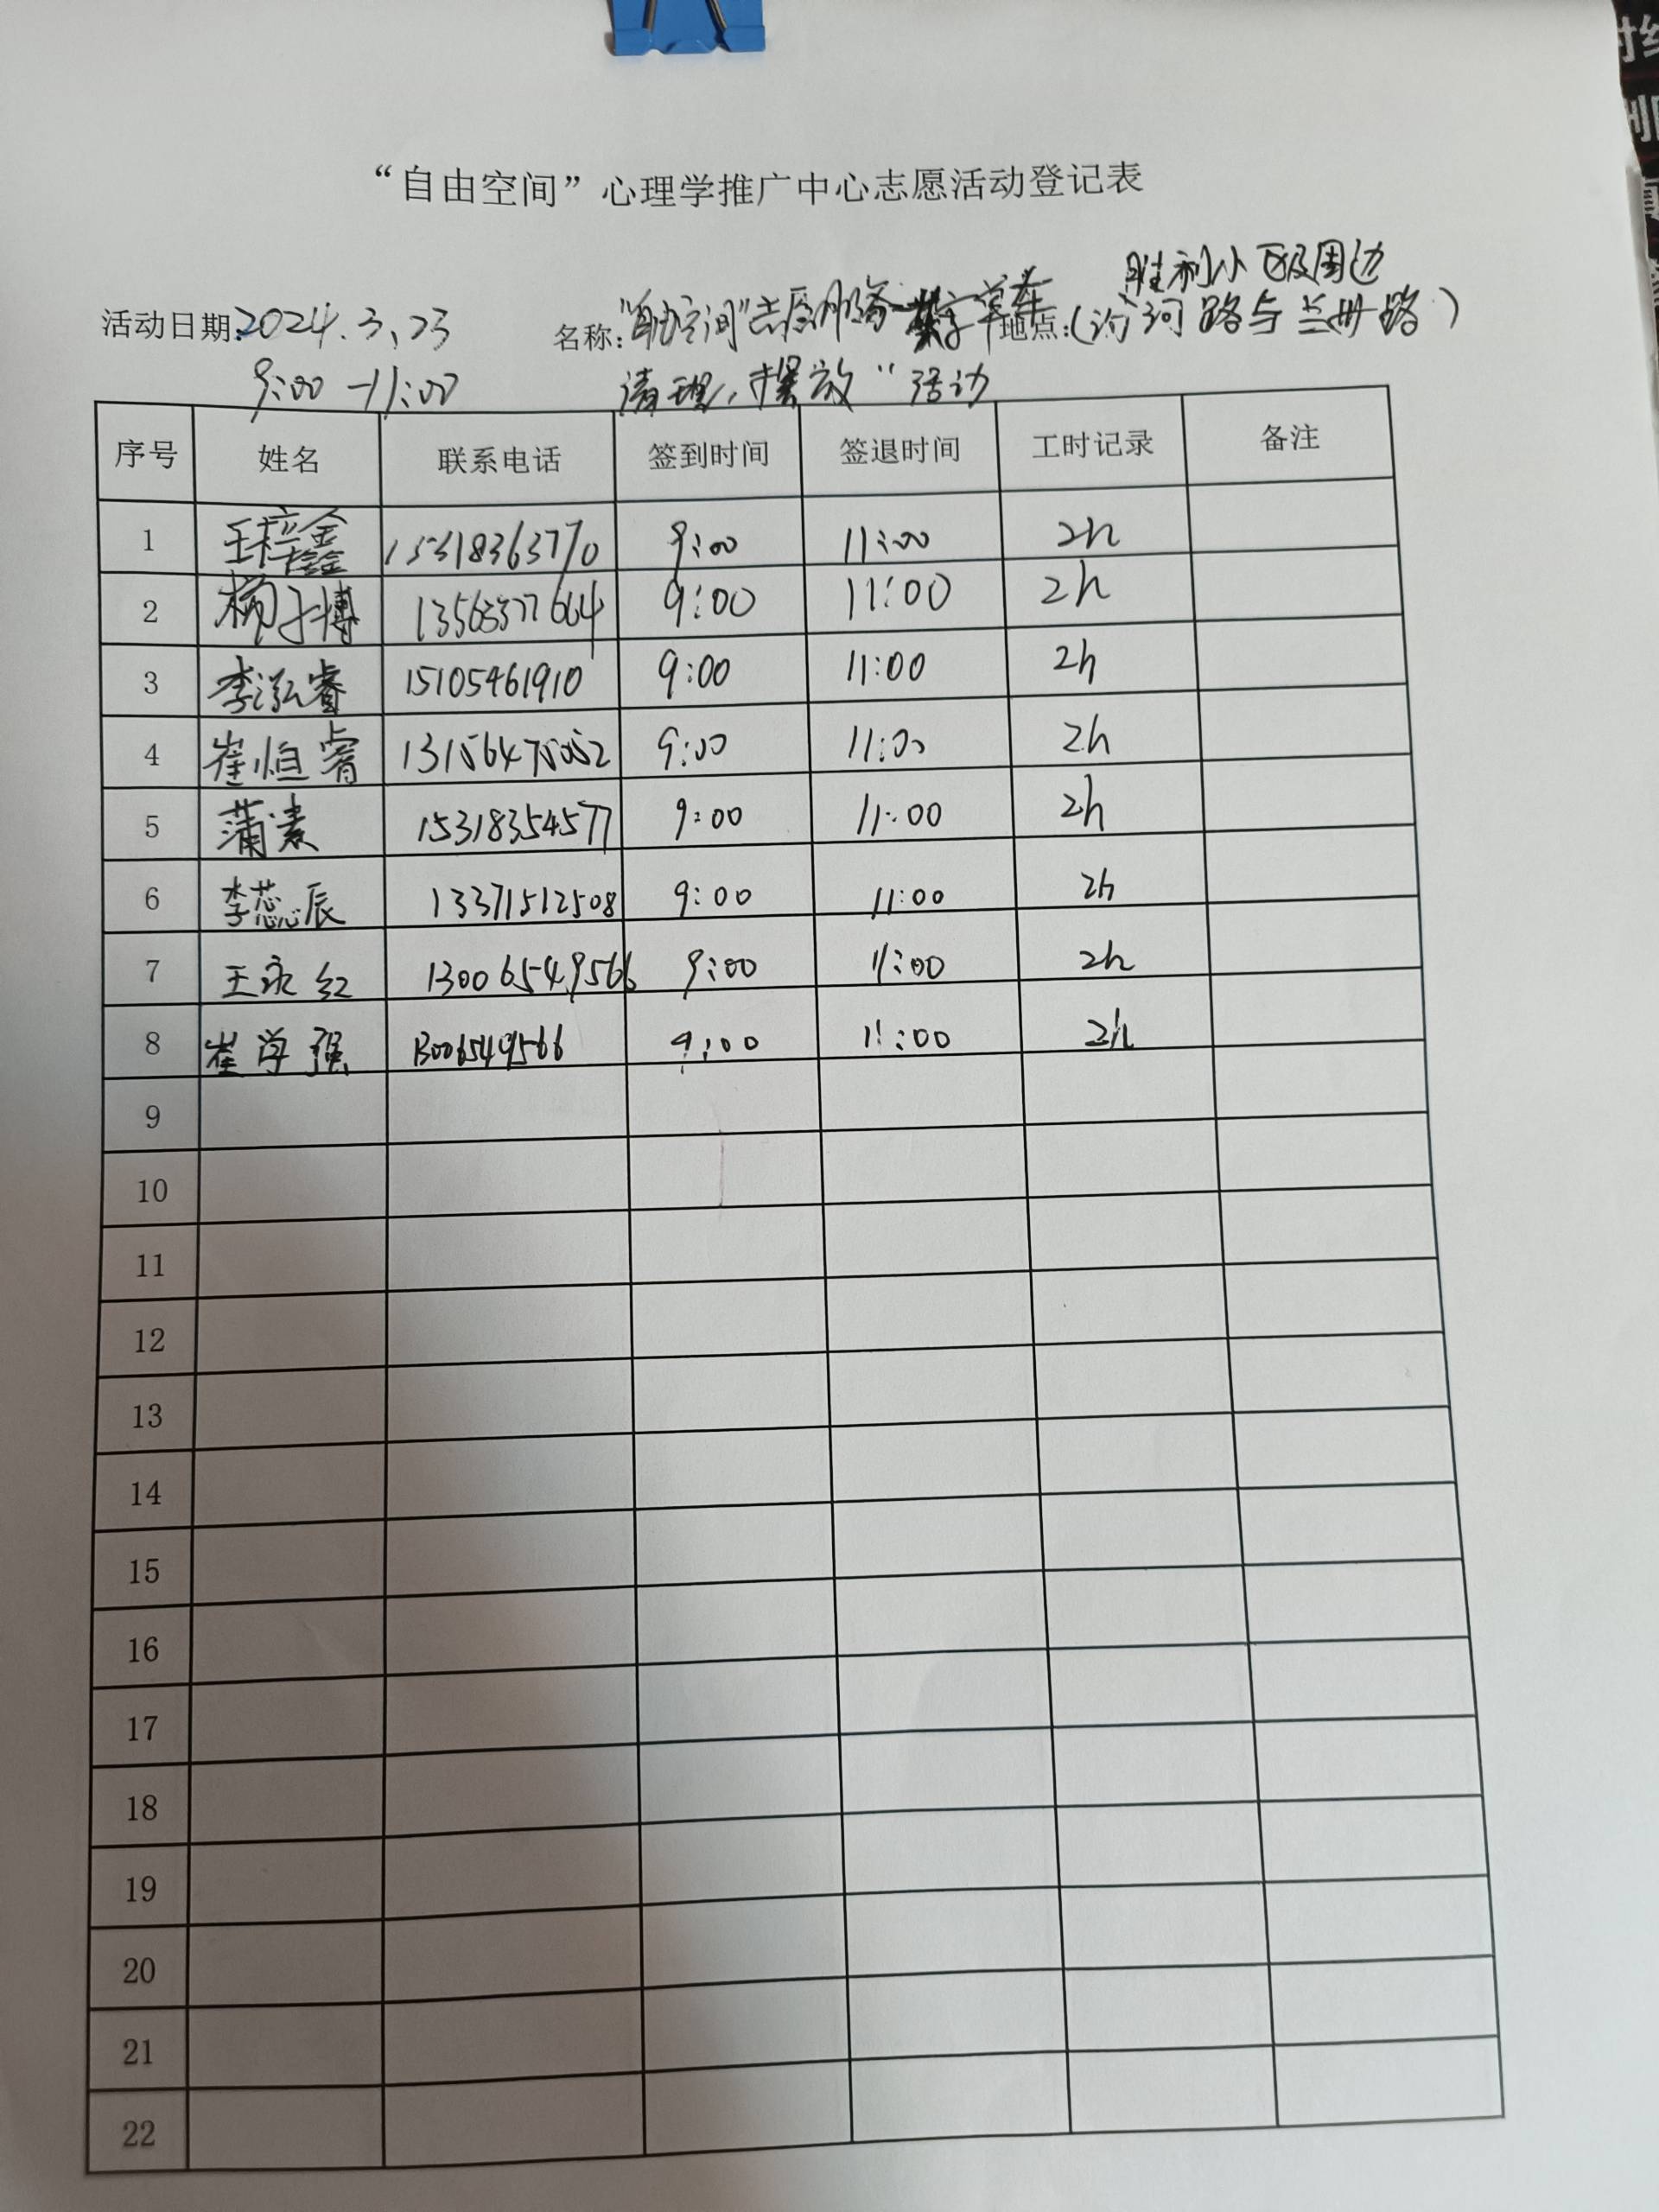 “自由空间”心理学推广中心志愿活动登记表
胜利小区及周边
活动日期:2024.3.23 名称:“自由空间”志愿服务 单车 地点:(汾河路与兰州路)
9:00-11:00 清理,摆放”活动
序号 姓名 联系电话 签到时间 签退时间 工时记录 备注
1 王梓鑫 15318363770 9:00 11:00 2h
2 杨子博 13563377664 9:00 11:00 2h
3 李泓睿 15105461910 9:00 11:00 2h
4 崔恒睿 13156475052 9:00 11:00 2h
5 蒲素 15318354577 9:00 11:00 2h
6 李蕊辰 13371512508 9:00 11:00 2h
7 王永红 13006549566 9:00 11:00 2h
8 崔学强 13006549566 9:00 11:00 2h
9
10
11
12
13
14
15
16
17
18
19
20
21
22